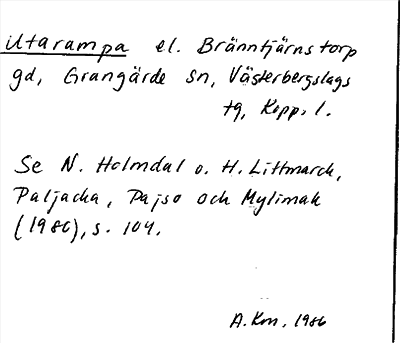 Utarampa el. Bränntjärnstorp
gd, Grangärde sn, Västerbergslags
tg, Kopp. l.
Se N. Holmdal o. H. Littmarck,
Paljacka, Pajso och Mylimak
(1986), s. 104.
A. Km, 1986